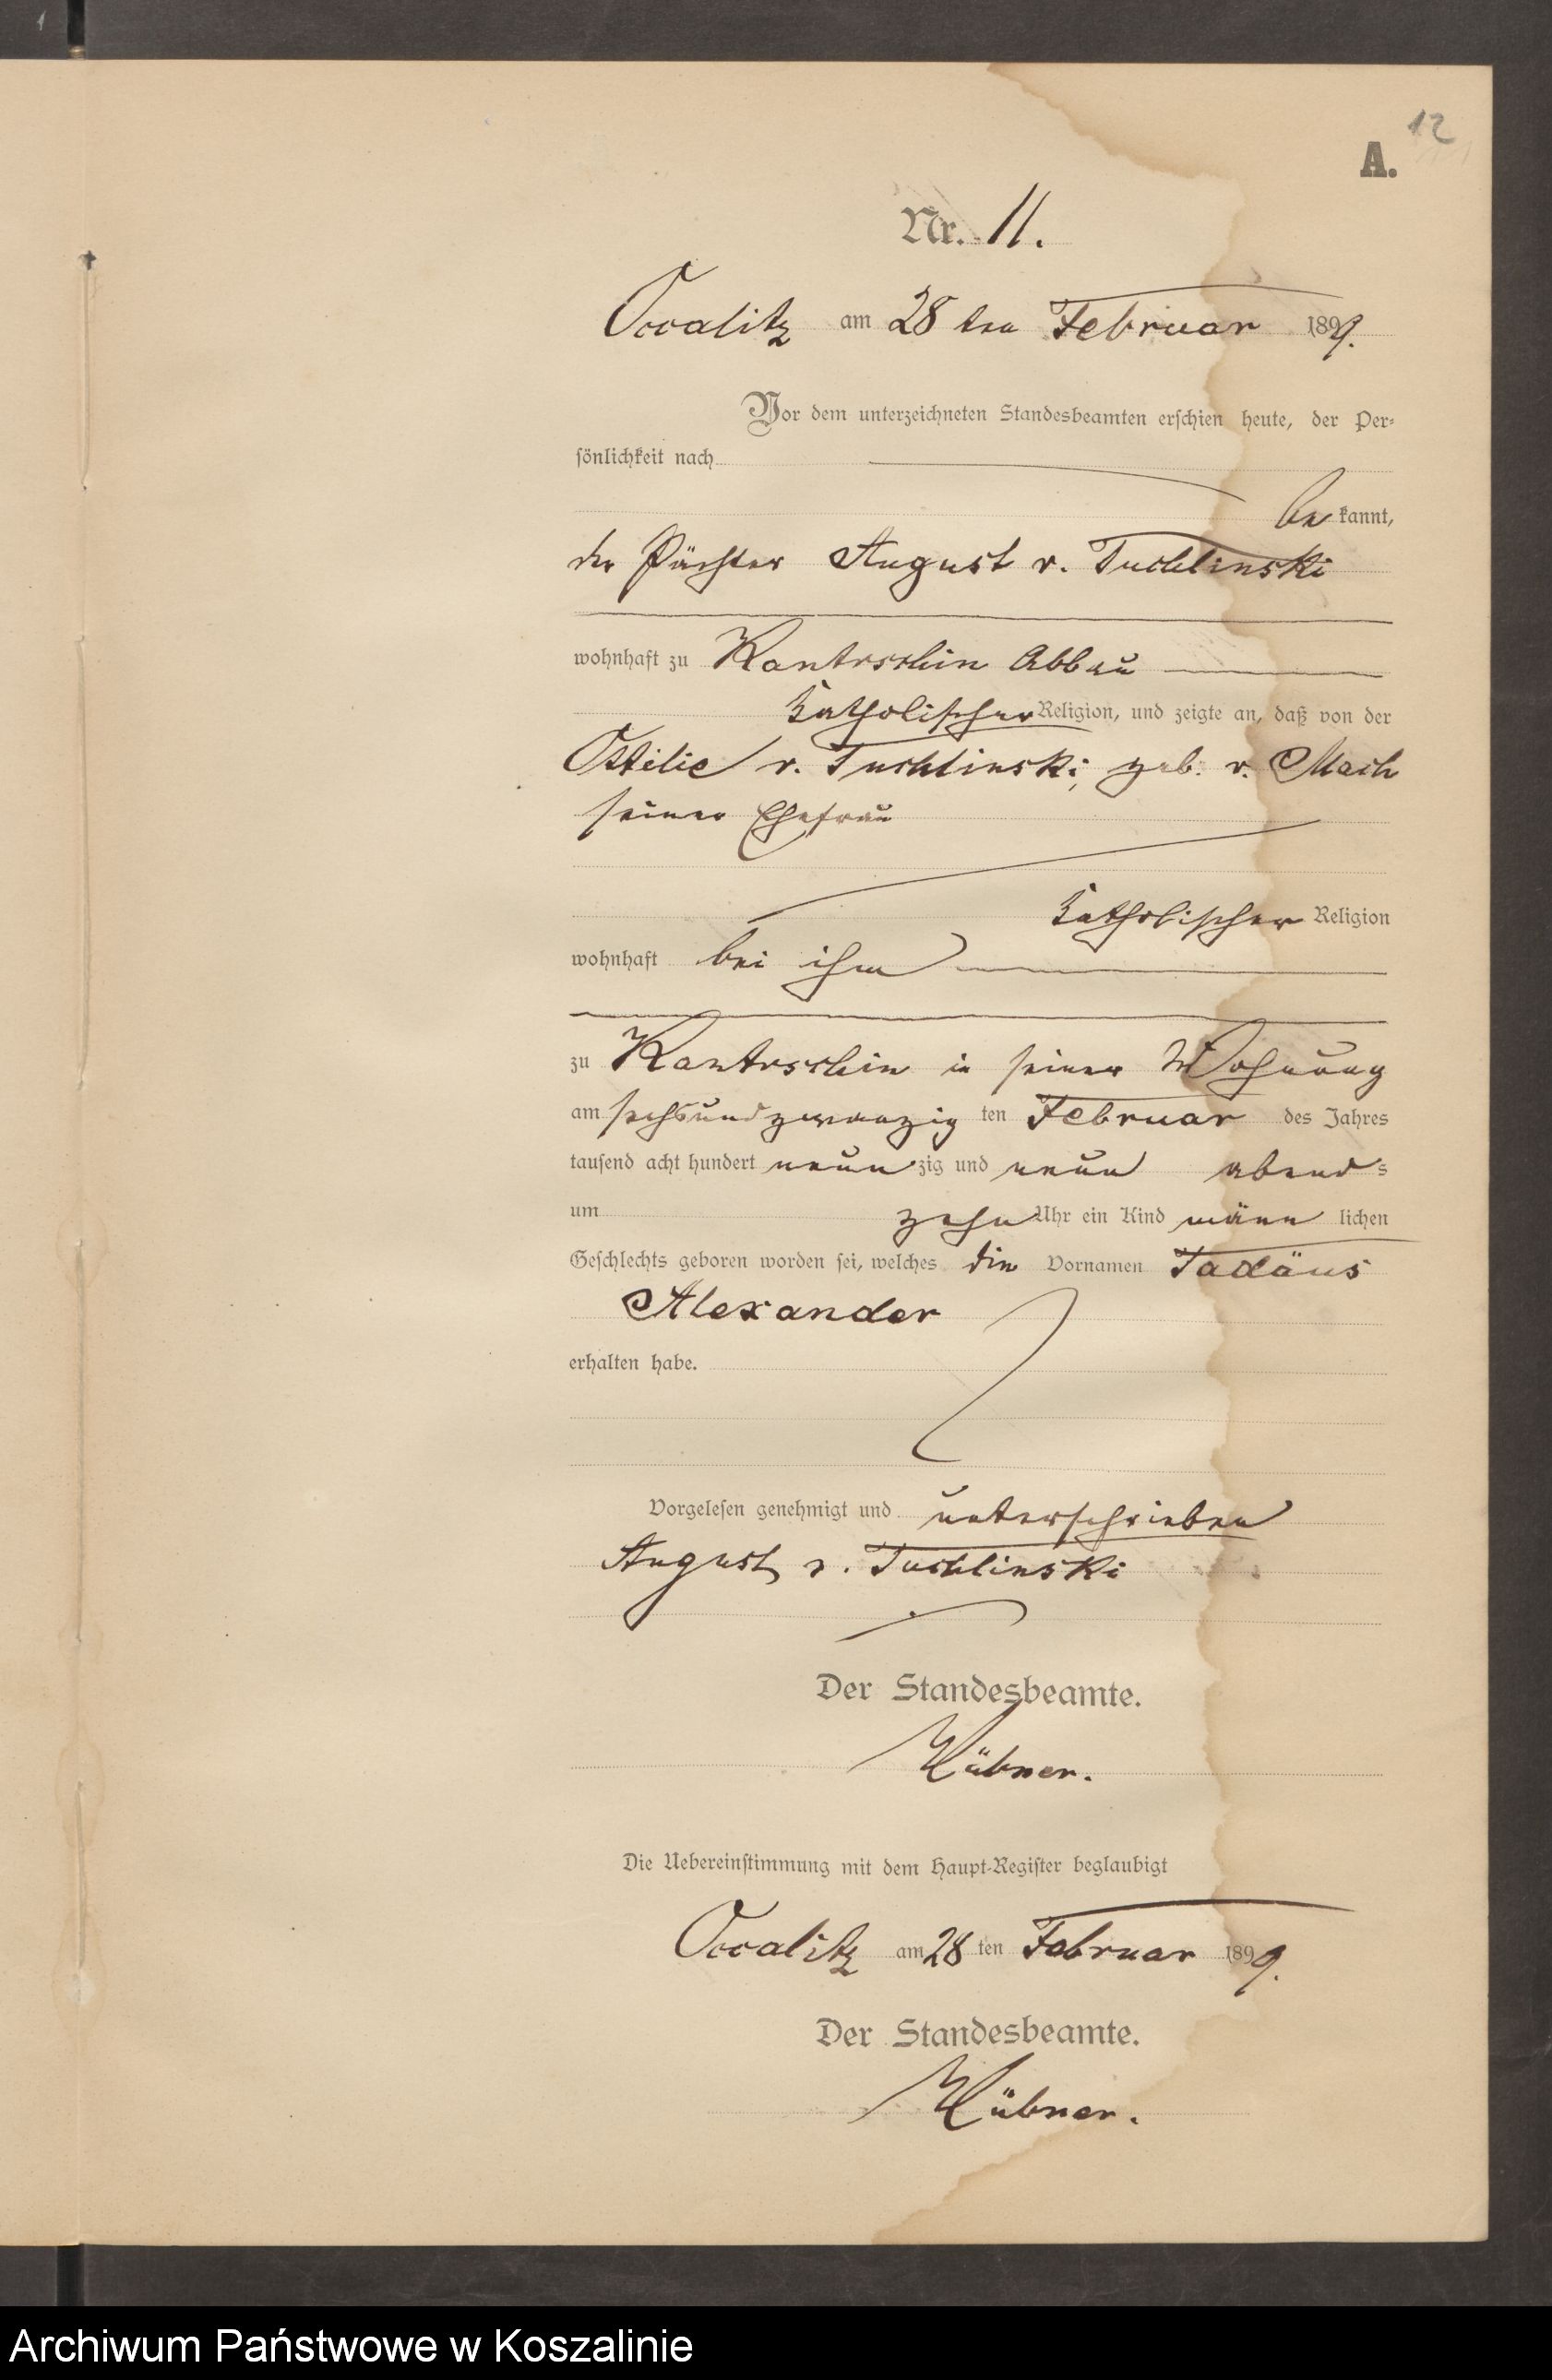 12
A.
Nr. 11.
Occalitz am 28 ten Februar 1899.
Vor dem unterzeichneten Standesbeamten erschien heute, der Per-
sönlichkeit nach
be kannt,
der Pächter August v. Tuchlinski
wohnhaft zu Kantrschin Abbau
katholischer Religion, und zeigte an, daß von der
Ottilie v. Tuchlinski, geb. v. Mach
seiner Ehefrau
katholischer Religion
wohnhaft bei ihm
zu Kantrschin in seiner Wohnung
am sechsundzwanzig ten Februar des Jahres
tausend acht hundert neun zig und neun abend s
um zehn Uhr ein Kind männ lichen
Geschlechts geboren worden sei, welches die Vornamen Tadäus
Alexander
erhalten habe.
Vorgelesen genehmigt und unterschrieben
August v. Tuchlinski
Der Standesbeamte.
Hübner.
Die Uebereinstimmung mit dem Haupt-Register beglaubigt
Occalitz am 28 ten Februar 1899.
Der Standesbeamte.
Hübner.
Archiwum Państwowe w Koszalinie